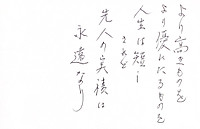 より高きものを
より優れたるものを
人生は短し
されど
先人の実積は
永遠なり